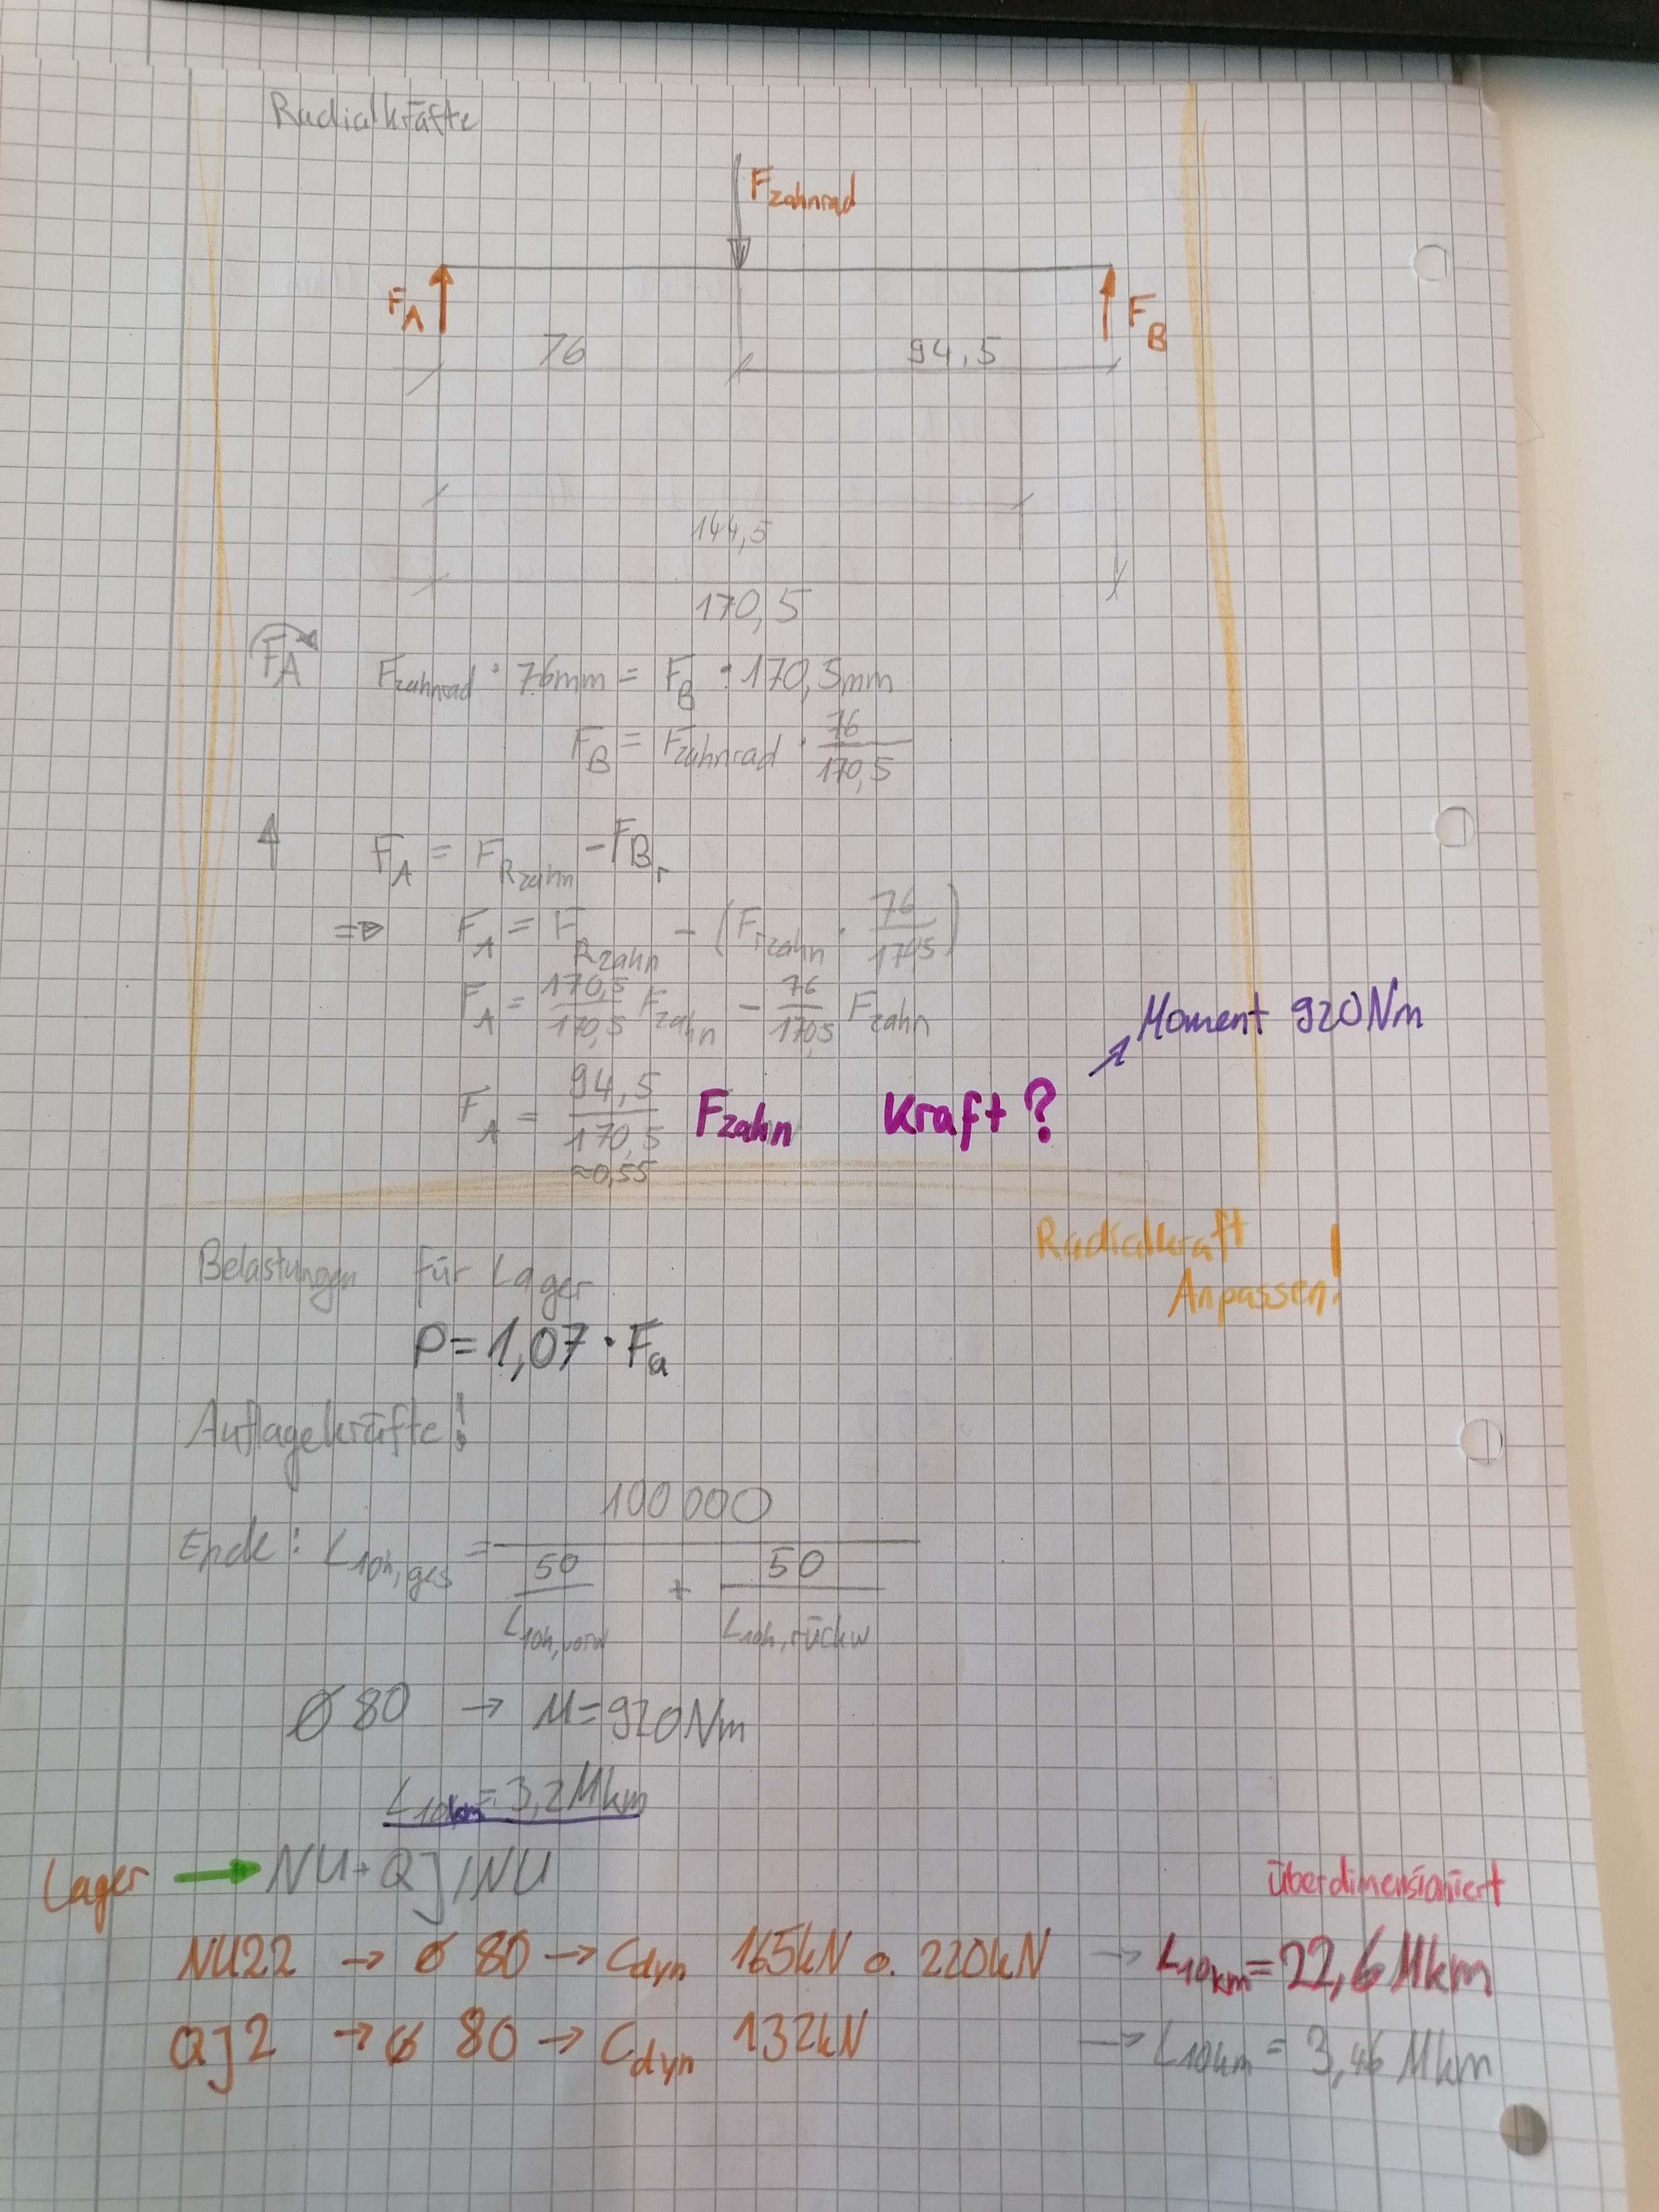 Radialkräfte
Fzahnrad
FA
FB
76
94,5
144,5
170,5
FA
Fzahnrad · 76mm = FB · 170,5mm
FB = Fzahnrad · 76/170,5
FA = FRzahn - FBr
=> FA = FRzahn - (Frzahn · 76/170,5)
FA = 170,5/170,5 Fzahn - 76/170,5 Fzahn
Moment 920Nm
FA = 94,5/170,5 Fzahn Kraft?
≈0,55
Radialkraft
Anpassen!
Belastungen für Lager
P=1,07 · Fa
Auflagekräfte!
Ende: L10h,ges = 100 000 / (50/L10h,vorw + 50/L10h,rückw)
Ø 80 → M=920Nm
L10km= 3,2Mkm
Lager → NU+QJ/NU
überdimensioniert
NU22 → Ø 80 → Cdyn 165kN o. 220kN → L10km= 22,6 Mkm
QJ2 → Ø 80 → Cdyn 132kN → L10km = 3,46 Mkm